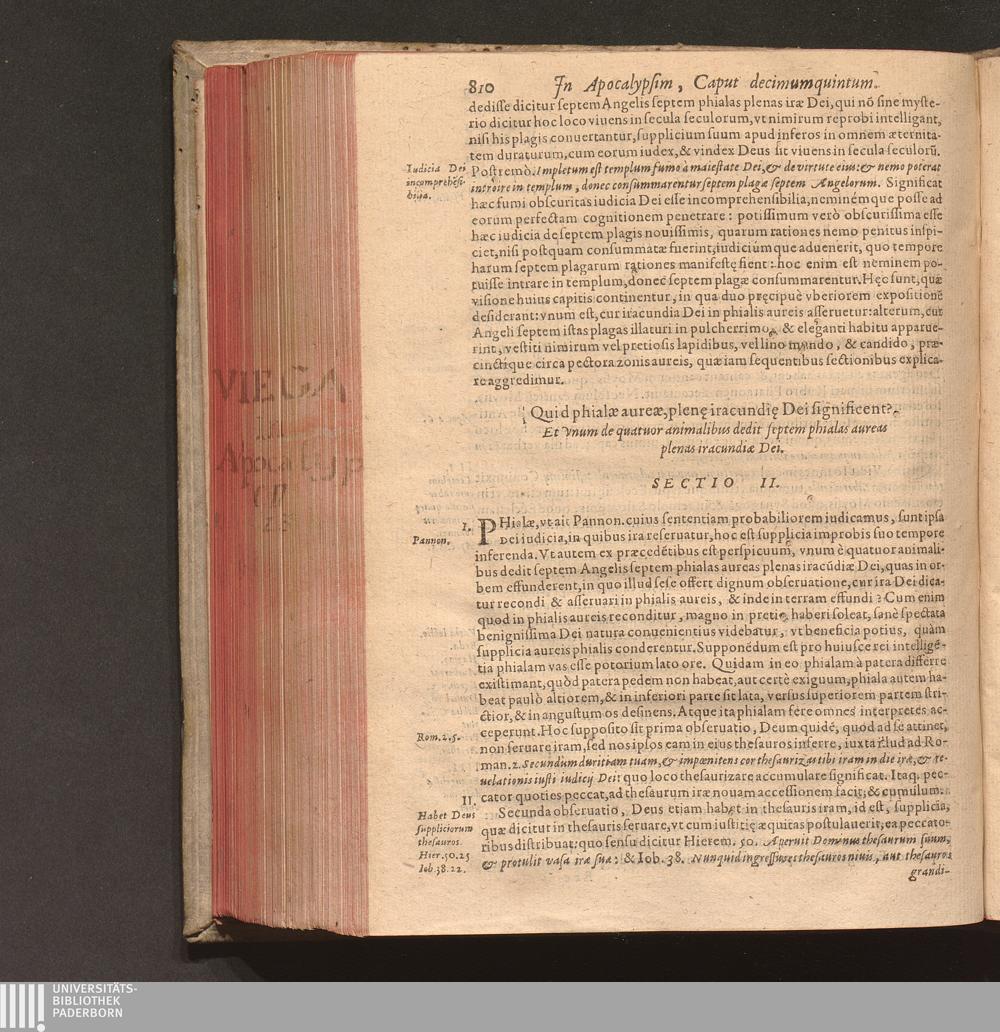 810 In Apocalypsim, Caput decimumquintum.
dedisse dicitur septem Angelis septem phialas plenas iræ Dei, qui nō sine myste-
rio dicitur hoc loco viuens in secula seculorum, vt nimirum reprobi intelligant,
nisi his plagis conuertantur, supplicium suum apud inferos in omnem æternita-
tem duraturum, cum eorum iudex, & vindex Deus sit viuens in secula seculorū.
Iudicia Dei
incomprehēsi-
bilia.
Postremò. Impletum est templum fumo à maiestate Dei, & de virtute eius: & nemo poterat
introire in templum, donec consummarentur septem plagæ septem Angelorum. Significat
hæc fumi obscuritas iudicia Dei esse incomprehensibilia, neminémque posse ad
eorum perfectam cognitionem penetrare: potissimum verò obscurissima esse
hæc iudicia de septem plagis nouissimis, quarum rationes nemo penitus inspi-
ciet, nisi postquam consummatæ fuerint, iudiciúmque aduenerit, quo tempore
harum septem plagarum rationes manifestę fient: hoc enim est neminem po-
tuisse intrare in templum, donec septem plagæ consummarentur. Hęc sunt, quæ
visione huius capitis continentur, in qua duo pręcipuè vberiorem expositionē
desiderant: vnum est, cur iracundia Dei in phialis aureis asseruetur: alterum, cur
Angeli septem istas plagas illaturi in pulcherrimo, & eleganti habitu apparue-
rint, vestiti nimirum vel pretiosis lapidibus, vel lino mundo, & candido, præ-
cinctíque circa pectora zonis aureis, quæ iam sequentibus sectionibus explica-
re aggredimur.
Quid phialæ aureæ, plenę iracundię Dei significent?
Et vnum de quatuor animalibus dedit septem phialas aureas
plenas iracundiæ Dei.
SECTIO II.
I.
Pannon.
PHialæ, vt ait Pannon. cuius sententiam probabiliorem iudicamus, sunt ipsa
Dei iudicia, in quibus ira reseruatur, hoc est supplicia improbis suo tempore
inferenda. Vt autem ex præcedētibus est perspicuum, vnum è quatuor animali-
bus dedit septem Angelis septem phialas aureas plenas iracūdiæ Dei, quas in or-
bem effunderent, in quo illud sese offert dignum obseruatione, cur ira Dei dica-
tur recondi & asseruari in phialis aureis, & inde in terram effundi? Cum enim
quod in phialis aureis reconditur, magno in pretio haberi soleat, sanè spectata
benignissima Dei natura conuenientius videbatur, vt beneficia potius, quàm
supplicia aureis phialis conderentur. Supponēdum est pro huiusce rei intelligē-
tia phialam vas esse potorium lato ore. Quidam in eo phialam à patera differre
existimant, quòd patera pedem non habeat, aut certè exiguum, phiala autem ha-
beat paulò altiorem, & in inferiori parte sit lata, versus superiorem partem stri-
ctior, & in angustum os desinens. Atque ita phialam fere omnes interpretes ac-
ceperunt. Hoc supposito sit prima obseruatio, Deum quidē, quod ad se attinet,
Rom. 2. 5.
non seruare iram, sed nos ipsos eam in eius thesauros inferre, iuxta illud ad Ro-
man. 2. Secundum duritiam tuam, & impœnitens cor thesaurizas tibi iram in die iræ, & re-
uelationis iusti iudicij Dei: quo loco thesaurizare accumulare significat. Itaq; pec-
cator quoties peccat, ad thesaurum iræ nouam accessionem facit, & cumulum.
II.
Habet Deus
suppliciorum
thesauros.
Hier. 50. 25
Iob. 38. 22.
Secunda obseruatio, Deus etiam habet in thesauris iram, id est, supplicia,
quæ dicitur in thesauris seruare, vt cum iustitię æquitas postulauerit, ea peccato-
ribus distribuat: quo sensu dicitur Hierem. 50. Aperuit Dominus thesaurum suum,
& protulit vasa iræ suæ: & Iob. 38. Nunquid ingressus es thesauros niuis, aut thesauros
grandi-
VIEGA
in
Apocalyp
UNIVERSITÄTS-
BIBLIOTHEK
PADERBORN